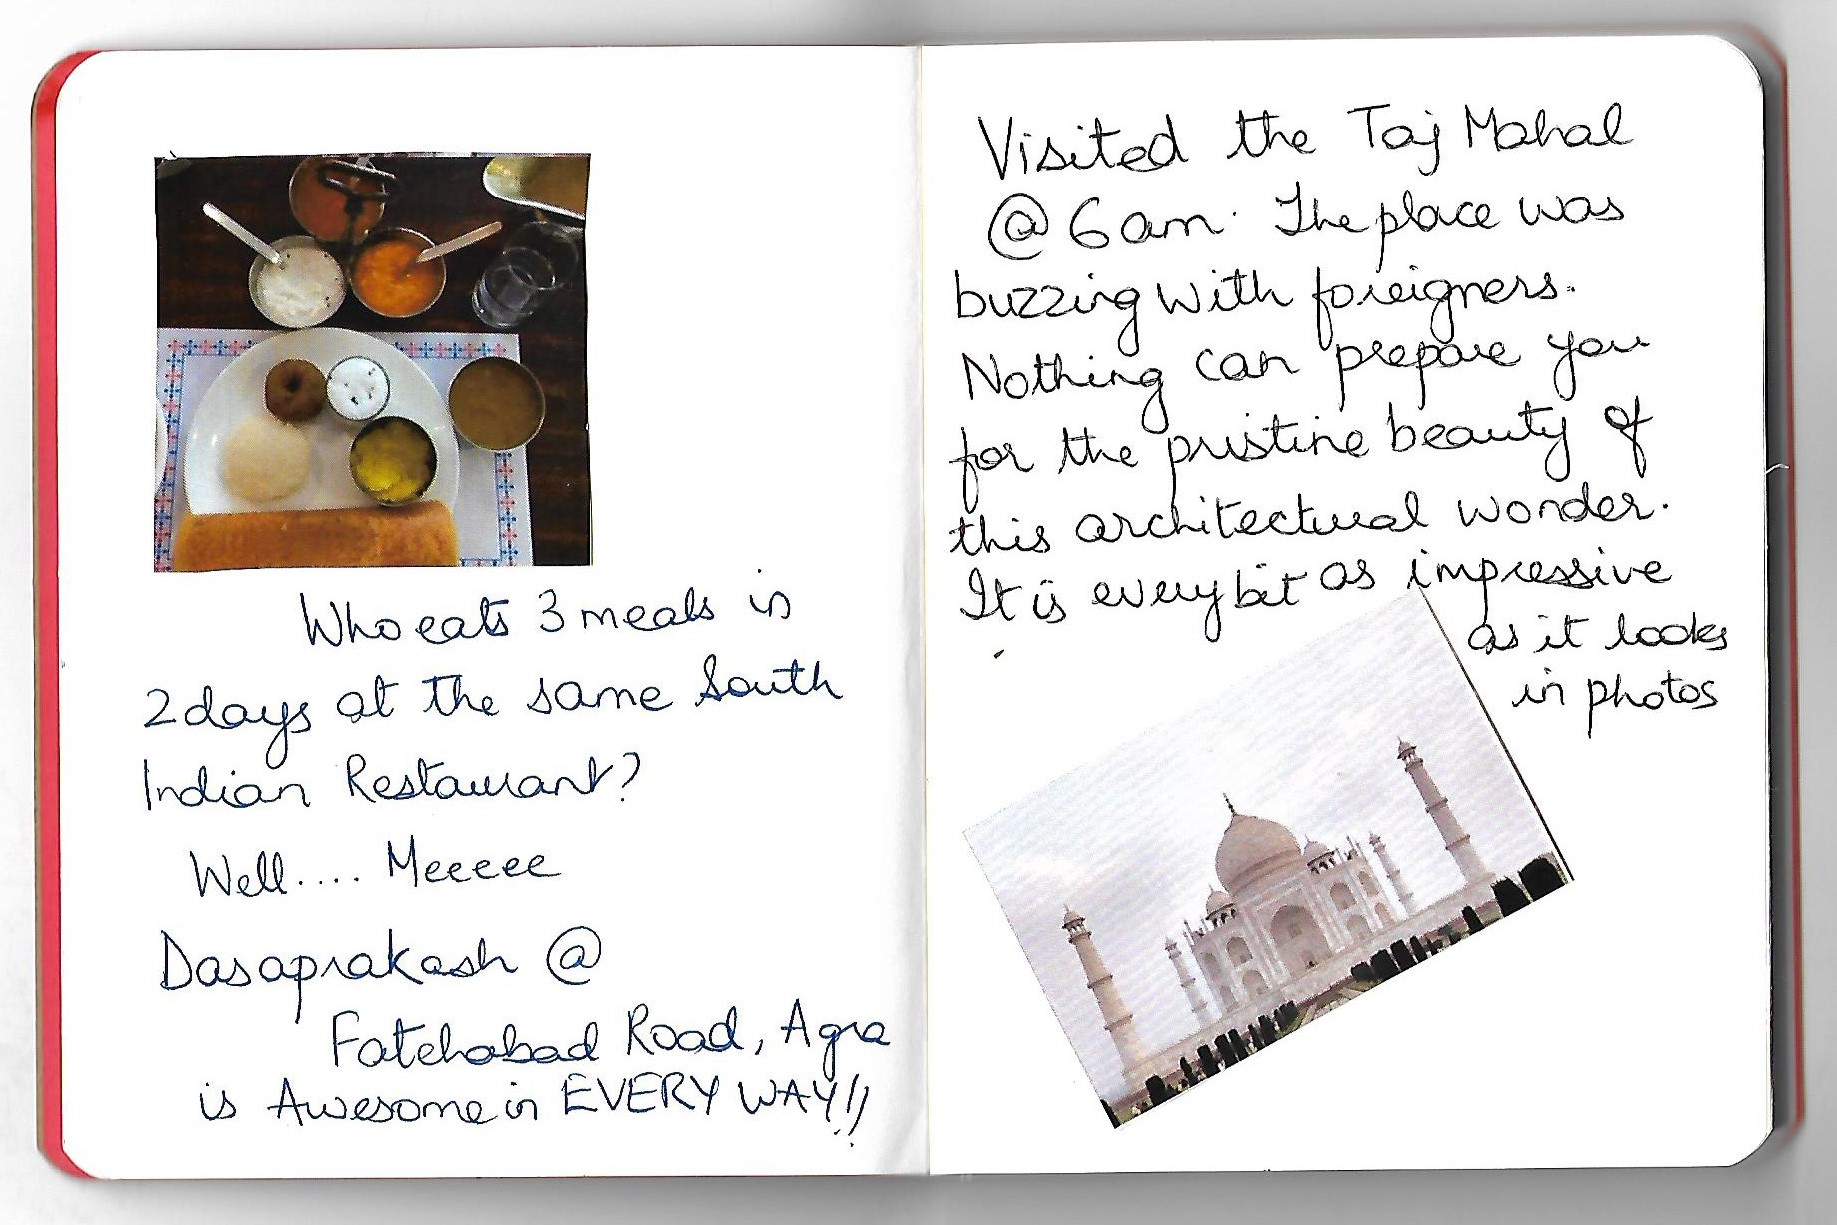 Who eats 3 meals in
2 days at the same South
Indian Restaurant?
Well.... Meeeee
Dasaprakash @
Fatehabad Road, Agra
is Awesome in EVERY WAY!!
Visited the Taj Mahal
@ 6am. The place was
buzzing with foreigners.
Nothing can prepare you
for the pristine beauty of
this architectural wonder.
It is every bit as impressive
as it looks
in photos